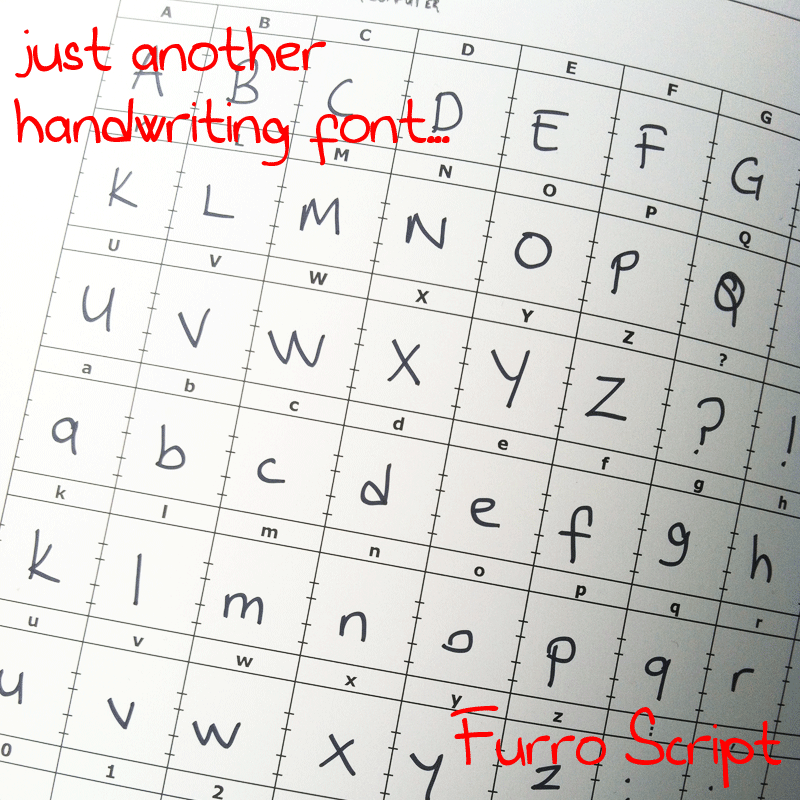 A B C D E F G
just another
A B C D E F G
handwriting font...
L M N O P Q
K L M N O P Q
U V W X Y Z ?
U V W X Y Z ? !
a b c d e f g h
a b c d e f g h
k l m n o p q r
k l m n o p q r
u v w x y z :
u v w x y z
Furro Script
0 1 2